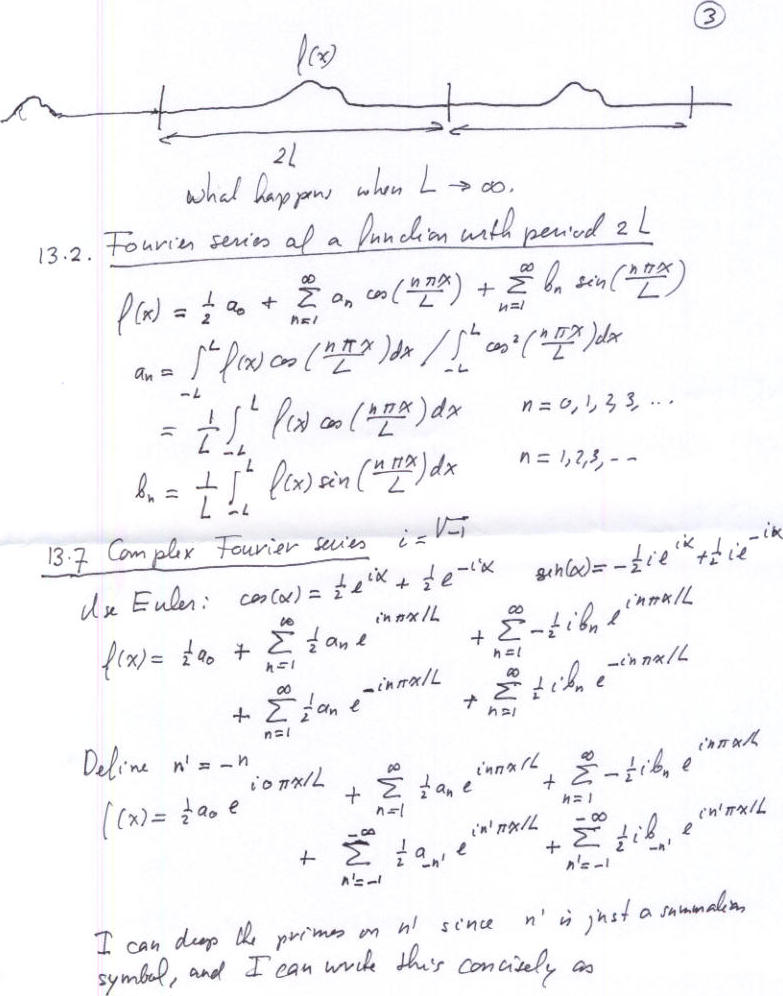 ③
f(x)
2L
What happens when L → ∞.
13.2. Fourier series of a function with period 2L
f(x) = ½ a₀ + ∑_{n=1}^{∞} aₙ cos(nπx/L) + ∑_{n=1}^{∞} bₙ sin(nπx/L)
aₙ = ∫_{-L}^{L} f(x) cos(nπx/L) dx / ∫_{-L}^{L} cos²(nπx/L) dx
= 1/L ∫_{-L}^{L} f(x) cos(nπx/L) dx n = 0, 1, 2, 3, ...
bₙ = 1/L ∫_{-L}^{L} f(x) sin(nπx/L) dx n = 1, 2, 3, --
13.7 Complex Fourier series i = √-1
Use Euler: cos(α) = ½ e^{iα} + ½ e^{-iα} sin(α) = -½ i e^{iα} + ½ i e^{-iα}
f(x) = ½ a₀ + ∑_{n=1}^{∞} ½ aₙ e^{inπx/L} + ∑_{n=1}^{∞} -½ i bₙ e^{inπx/L}
+ ∑_{n=1}^{∞} ½ aₙ e^{-inπx/L} + ∑_{n=1}^{∞} ½ i bₙ e^{-inπx/L}
Define n' = -n
f(x) = ½ a₀ e^{i0πx/L} + ∑_{n=1}^{∞} ½ aₙ e^{inπx/L} + ∑_{n=1}^{∞} -½ i bₙ e^{inπx/L}
+ ∑_{n'=-1}^{-∞} ½ a_{-n'} e^{in'πx/L} + ∑_{n'=-1}^{-∞} ½ i b_{-n'} e^{in'πx/L}
I can drop the primes on n' since n' is just a summation
symbol, and I can write this concisely as